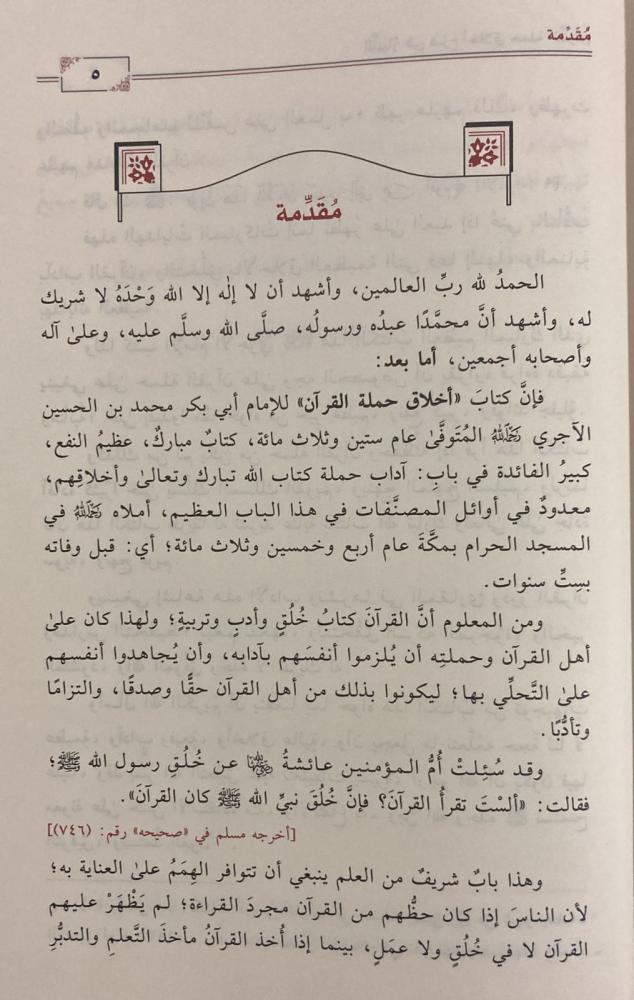 مُقَدِّمة
٥
مُقَدِّمة
الحمدُ لله ربِّ العالمين، وأشهد أن لا إلٰه إلا الله وَحْدَهُ لا شريك
له، وأشهد أنَّ محمَّدًا عبدُه ورسولُه، صلَّى الله وسلَّم عليه، وعلىٰ آله
وأصحابه أجمعين، أما بعد:
فإنَّ كتابَ «أخلاق حملة القرآن» للإمام أبي بكر محمد بن الحسين
الآجري رَحِمَهُ اللَّهُ المُتَوفَّىٰ عام ستين وثلاث مائة، كتابٌ مباركٌ، عظيمُ النفع،
كبيرُ الفائدة في بابِ: آداب حملة كتاب الله تبارك وتعالىٰ وأخلاقِهم،
معدودٌ في أوائل المصنَّفات في هذا الباب العظيم، أملاه رَحِمَهُ اللَّهُ في
المسجد الحرام بمكَّةَ عام أربع وخمسين وثلاث مائة؛ أي: قبل وفاته
بسِتِّ سنوات.
ومن المعلوم أنَّ القرآنَ كتابُ خُلُقٍ وأدبٍ وتربيةٍ؛ ولهذا كان علىٰ
أهل القرآن وحملتِه أن يُلزموا أنفسَهم بآدابه، وأن يُجاهدوا أنفسهم
علىٰ التَّحلِّي بها؛ ليكونوا بذلك من أهل القرآن حقًّا وصدقًا، والتزامًا
وتأدُّبًا.
وقد سُئِلتْ أُمُّ المؤمنين عائشةُ رَضِيَ اللَّهُ عَنْهَا عن خُلُقِ رسول الله ﷺ؛
فقالت: «ألسْتَ تقرأُ القرآنَ؟ فإنَّ خُلُقَ نبيِّ الله ﷺ كان القرآنَ».
[أخرجه مسلم في «صحيحه» رقم: (٧٤٦)]
وهذا بابٌ شريفٌ من العلم ينبغي أن تتوافر الهِمَمُ علىٰ العناية به؛
لأن الناسَ إذا كان حظُّهم من القرآن مجردَ القراءة؛ لم يَظْهَرْ عليهم
القرآن لا في خُلُقٍ ولا عمَلٍ، بينما إذا أُخذ القرآنُ مأخذَ التَّعلمِ والتدبُّرِ